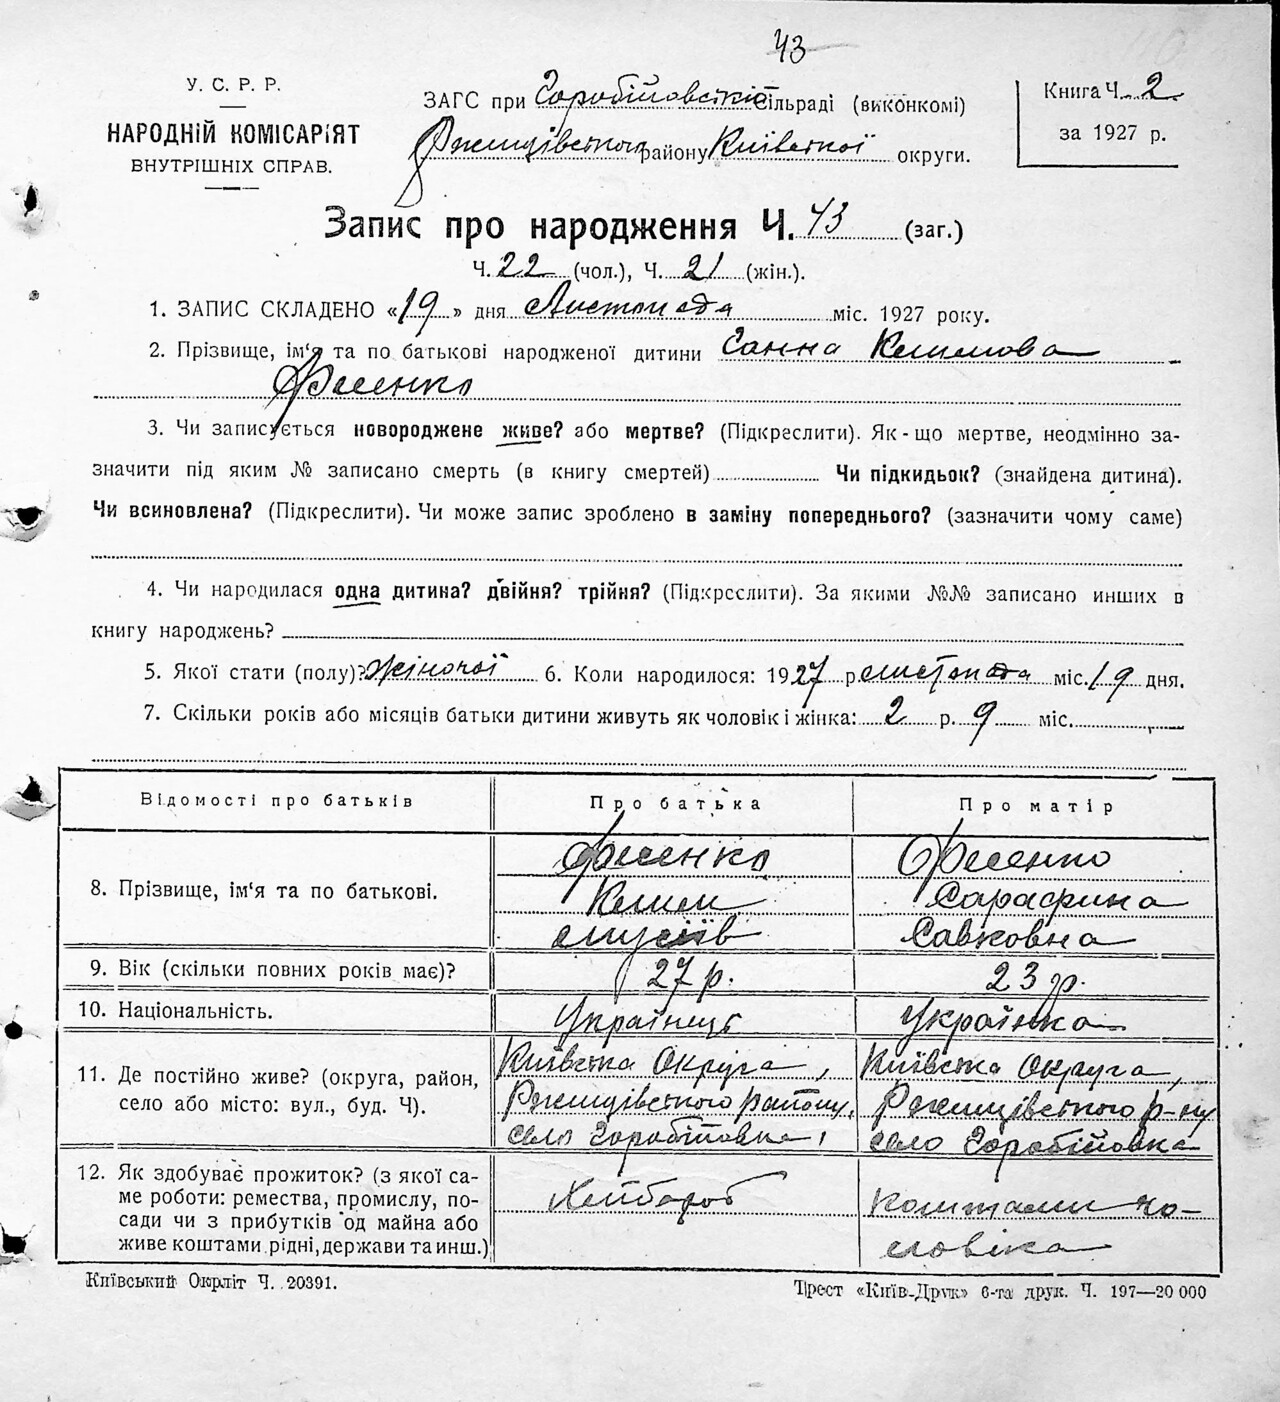 43
У. С. Р. Р.
НАРОДНІЙ КОМІСАРІЯТ
ВНУТРІШНІХ СПРАВ.
ЗАГС при Горобіїовській сільраді (виконкомі)
Ржищівського району Київської округи.
Книга Ч. 2
за 1927 р.
Запис про народження Ч. 43 (заг.)
Ч. 22 (чол.), Ч. 21 (жін.).
1. ЗАПИС СКЛАДЕНО «19» дня Листопада міс. 1927 року.
2. Прізвище, ім'я та по батькові народженої дитини Ганна
3. Чи записується новороджене живе? або мертве? (Підкреслити). Як-що мертве, неодмінно за-
значити під яким № записано смерть (в книгу смертей) Чи підкидьок? (знайдена дитина).
Чи всиновлена? (Підкреслити). Чи може запис зроблено в заміну попереднього? (зазначити чому саме)
4. Чи народилася одна дитина? двійня? трійня? (Підкреслити). За якими №№ записано инших в
книгу народжень?
5. Якої стати (полу)? жіночої 6. Коли народилося: 1927 р. листопада міс. 19 дня.
7. Скільки років або місяців батьки дитини живуть як чоловік і жінка: 2 р. 9 міс.
Відомості про батьків Про батька Про матір
8. Прізвище, ім'я та по батькові.
Сарафина
Савковна
9. Вік (скільки повних років має)? 27 р. 23 р.
10. Національність. Українець Українка
11. Де постійно живе? (округа, район,
село або місто: вул., буд. Ч).
Київська Округа, Київська Округа,
Ржищівського району, Ржищівського р-ну
село Горобіїовка, село Горобіїовка
12. Як здобуває прожиток? (з якої са-
ме роботи: ремества, промислу, по-
сади чи з прибутків од майна або
живе коштами рідні, держави та инш.)
Хлібороб
коштами чо-
ловіка
Київський Окрліт Ч. 20391.
Трест «Київ-Друк» 6-та друк. Ч. 197—20 000